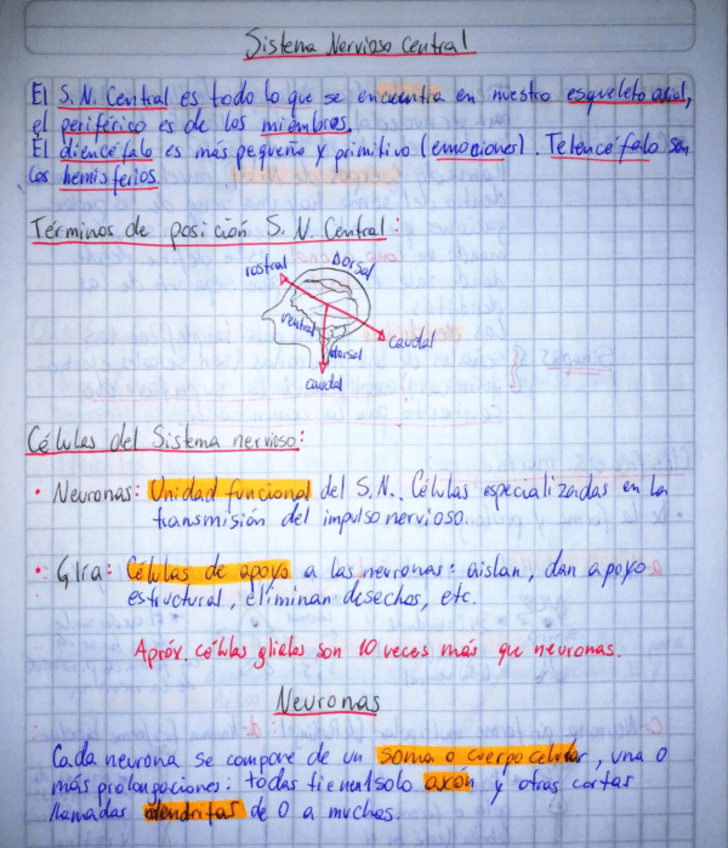 Sistema Nervioso Central
El S.N. Central es todo lo que se encuentra en nuestro esqueleto axial,
el periférico es de los miembros.
El diencéfalo es más pequeño y primitivo (emociones). Telencéfalo son
los hemisferios.
Términos de posición S.N. Central:
rostral
Dorsal
ventral
caudal
dorsal
caudal
Células del Sistema nervioso:
• Neuronas: Unidad funcional del S.N.. Células especializadas en la
transmisión del impulso nervioso.
• Glía: Células de apoyo a las neuronas: aislan, dan apoyo
estructural, eliminan desechos, etc.
Apróx. células gliales son 10 veces más que neuronas.
Neuronas
Cada neurona se compone de un soma o cuerpo celular, una o
más prolongaciones: todas tienen 1 solo axon y otras cortas
llamadas dendritas de 0 a muchas.